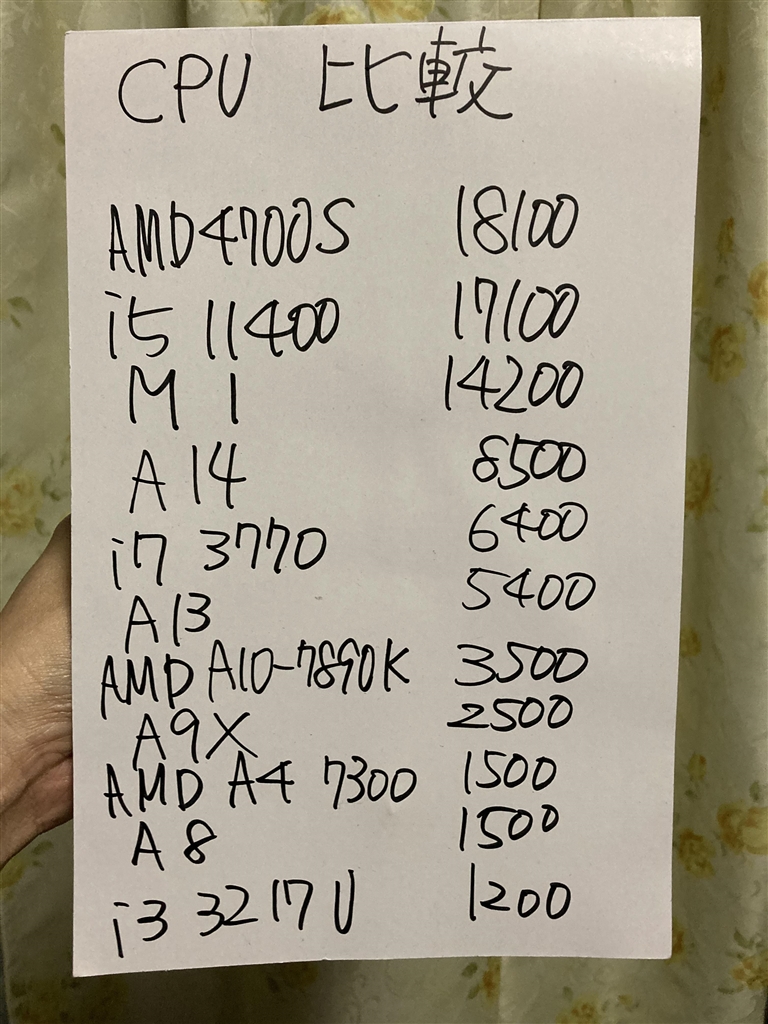 CPU 比較
AMD4700S 18100
i5 11400 17100
M 1 14200
A 14 8500
i7 3770 6400
A13 5400
AMD A10-7890K 3500
A9X 2500
AMD A4 7300 1500
A 8 1500
i3 3217U 1200